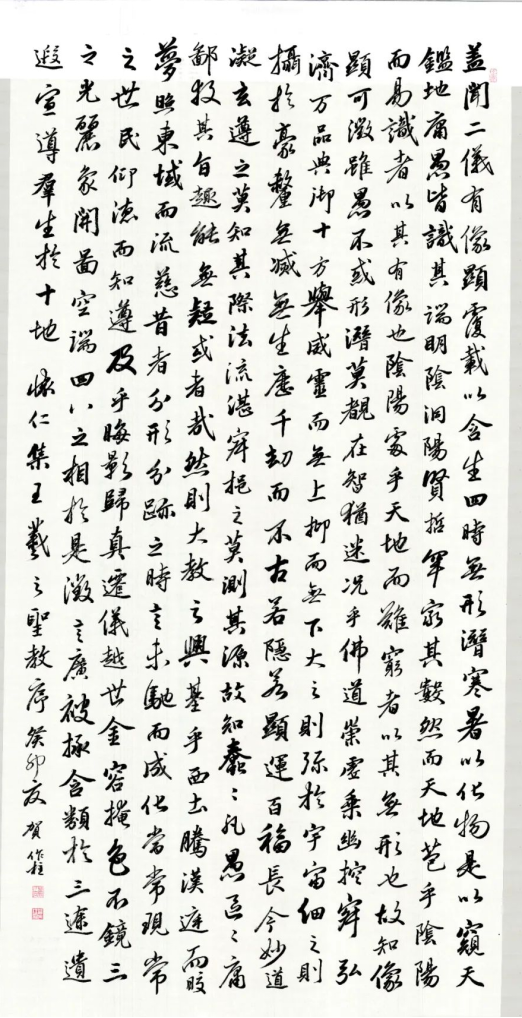 盖聞二儀有像顯覆載以含生四時無形潛寒暑以化物是以窺天
鑑地庸愚皆識其端明陰洞陽賢哲罕窮其數然而天地苞乎陰陽
而易識者以其有像也陰陽處乎天地而難窮者以其無形也故知像
顯可徵雖愚不或形潛莫覩在智猶迷况乎佛道崇虛乘幽控寂弘
濟万品典御十方舉威靈而無上抑而無下大之則弥於宇宙細之則
攝於豪釐無滅無生歷千劫而不古若隱若顯運百福長今妙道
凝玄遵之莫知其際法流湛寂挹之莫測其源故知蠢〻凡愚區〻庸
鄙投其旨趣能無疑或者哉然則大教之興基乎西土騰漢庭而皎
夢照東域而流慈昔者分形分跡之時言未馳而成化當常現常
之世民仰德而知遵及乎晦影歸真遷儀越世金容掩色不鏡三
之光麗象開圖空端四八之相於是微言廣被拯含類於三塗遺
遐宣導群生於十地 懷仁集王羲之聖教序 癸卯夏 賀作